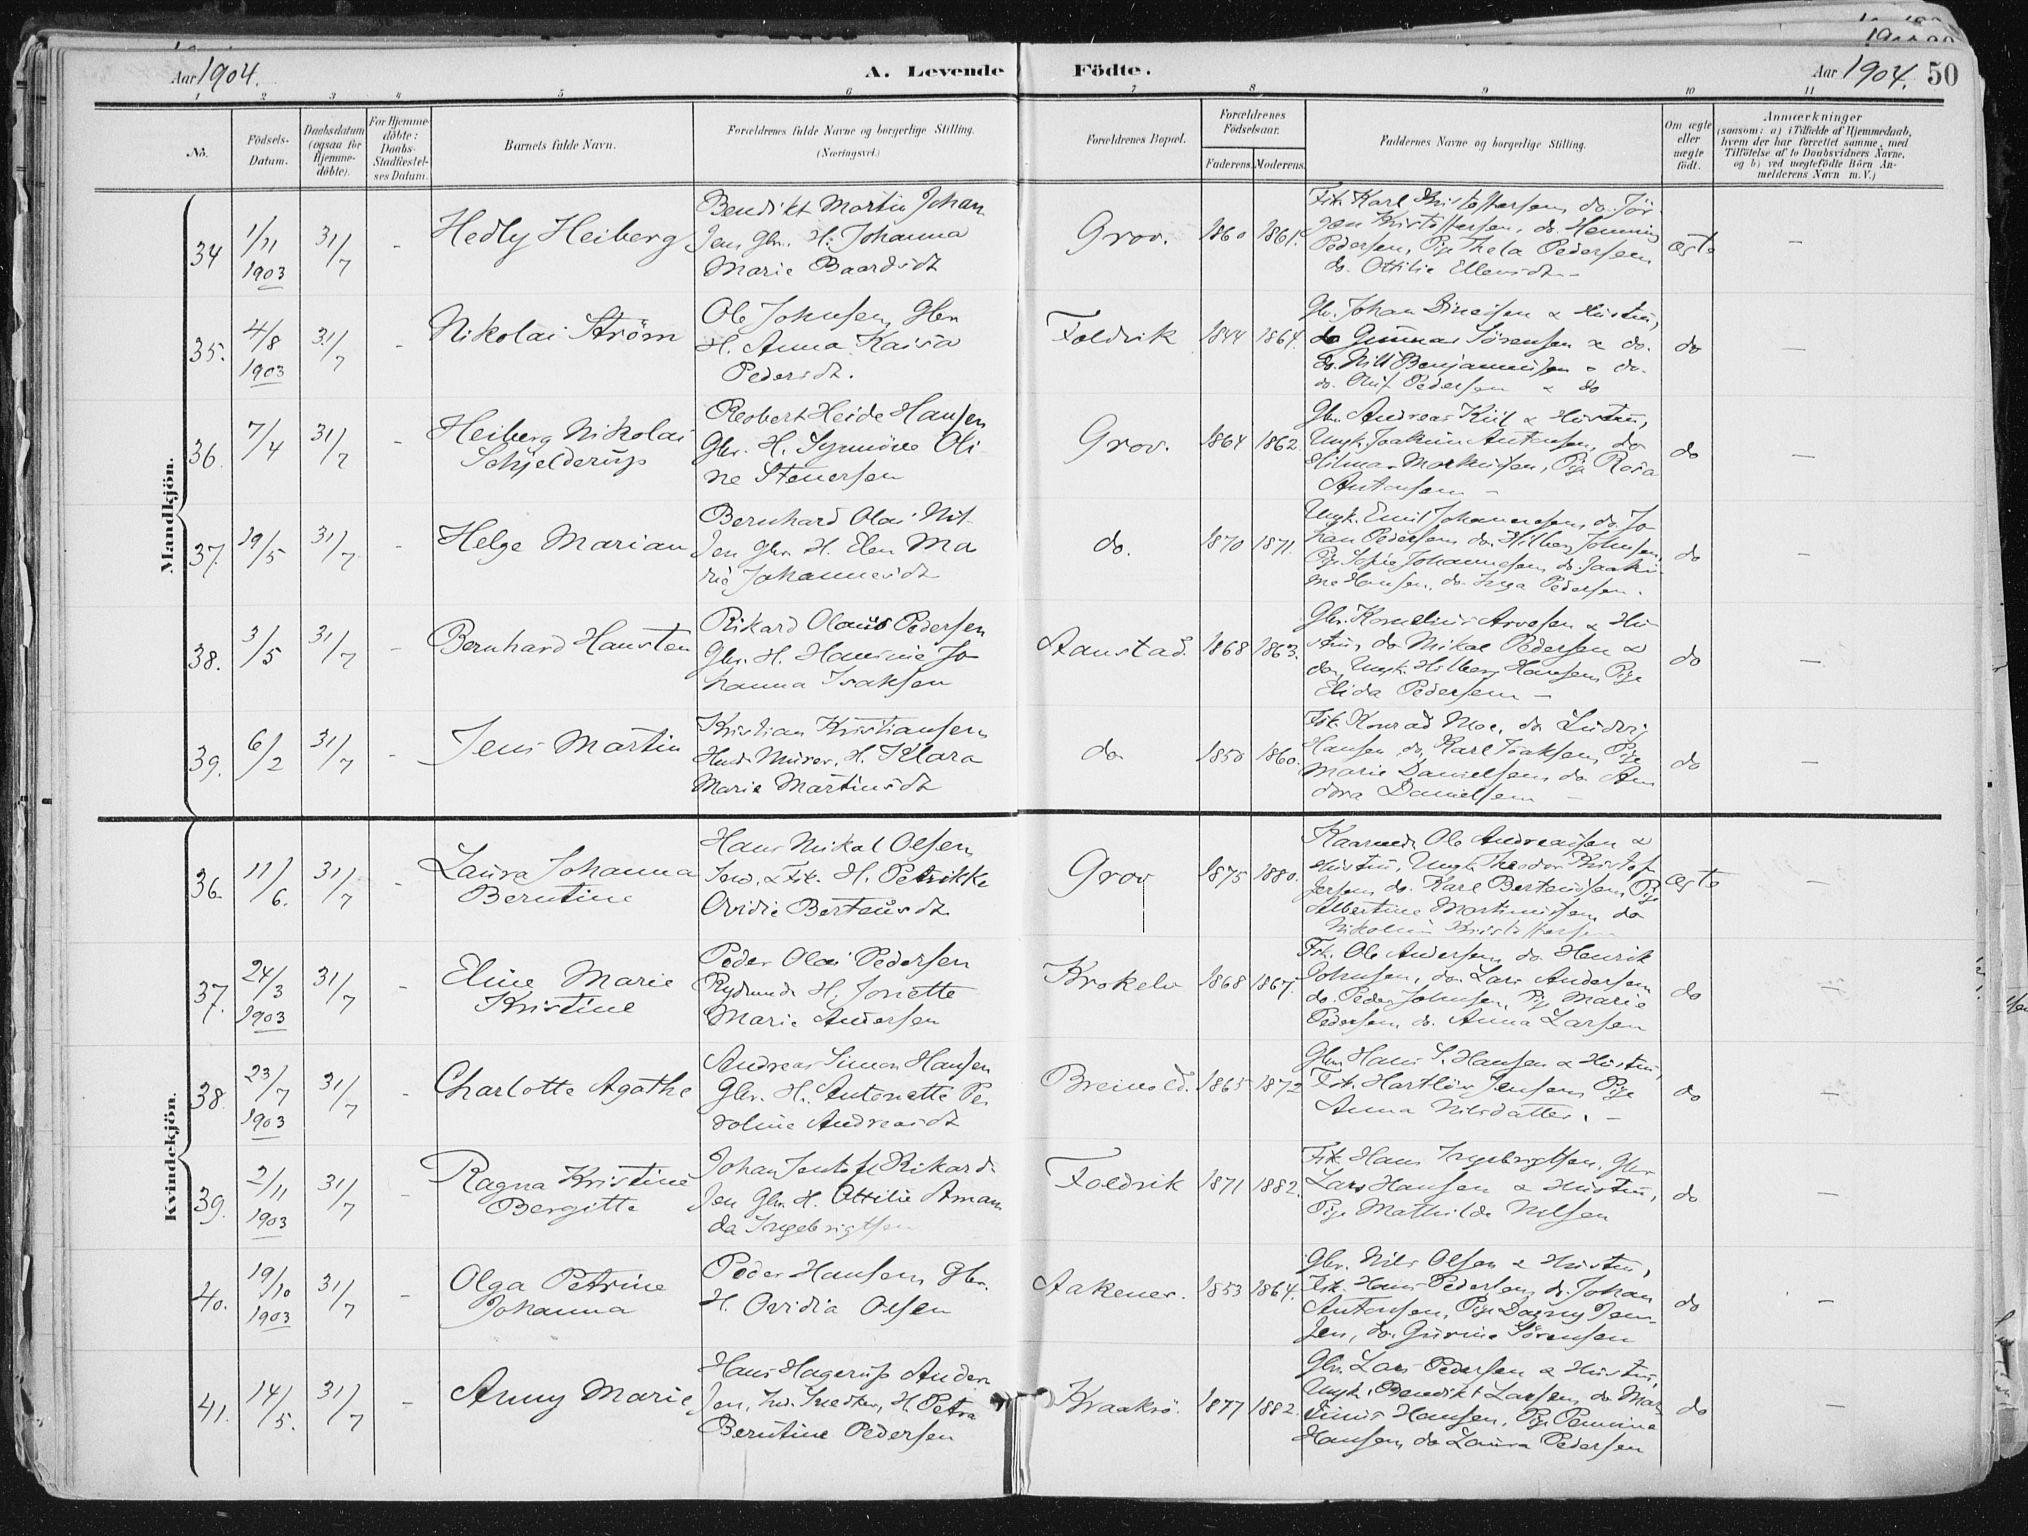 Aar 1904.
A. Levende Födte.
Aar 1904. 50
1 2 3 4 5 6 7 8 9 10 11
No.
Födsels-Datum.
Daabsdatum (ogsaa for Hjemmedöbte).
For Hjemmedöbte: Daabs-Stadfæstelses Datum.
Barnets fulde Navn.
Forældrenes fulde Navne og borgerlige Stilling.
(Næringsvei.)
Forældrenes Bopæl.
Forældrenes Födselsaar.
Faderens. Moderens.
Faddernes Navne og borgerlige Stilling.
Om ægte eller uægte født.
Anmærkninger
(saasom: a) i Tilfælde af Hjemmedaab, hvem der har forrettet samme, med Tilföielse af to Daabsvidners Navne, og b) ved uægtefödte Börn Anmelderens Navn m. V.)
Mandkjön.
34 1/11 1903 31/7 - Hedly Heiberg
Bendikt Martin Johan
sen Gbr. H. Johanna
Marie Baardsdt
Grov. 1860 1861.
Fsk. Karl Kristoffersen, do. Jör-
gen Kristoffersen, do. Henning
Pedersen, Pige Thela Pedersen
do. Ottilie Ellensdt. -
ægte -
35. 4/8 1903 31/7 Nikolai Ström
Ole Johnsen, Gbr
H. Anna Kaisa
Pedersdt.
Foldvik 1844 1864.
Gbr. Johan & Hustru,
do Gunnar Sörensen & do.
do. Benjaminsen & do.
do. Pedersen & do
do -
36. 7/4 31/7 - Heiberg Nikolai
Schjelderup
Robert Heide Hansen
Gbr. H. Synnöve Oli-
ne Stenersen
Grov. 1864 1862.
Gbr. Andreas & Hustru,
Ungk. Joakim Antonsen, do
Hilmar Markussen, Pige Rosa
Antonsen -
do -
37. 19/5 31/7 - Helge Marian
Bernhard Olai Nil-
sen Gbr H. Elen Ma-
rie Johannesdt
do. 1870 1871.
Ungk. Emil Johannesen, do. Jo-
han Pedersen, do. Hilberg Johnsen,
Pige Sofie Johannesen, do. Joaki-
ne Hansen, do. Inga Pedersen.
do -
38. 3/5 31/7 - Bernhard Hansten
Rikard Olaus Pedersen
Gbr. H. Hansine Jo-
hanna Isaksen
Aanstad. 1868 1863.
Gbr. Kornelius Arvesen & Hu-
stru, do Mikal Pedersen &
do, Ungk. Hilberg Hansen, Pige
Elida Pedersen -
do -
39. 6/2 31/7 - Jens Martin
Kristian Kristiansen
Murer, H. Klara
Marie Martinsdt
do 1850 1860.
Fsk. Konrad Moe, do Ludvig
Hansen, do, Karl Isaksen, Pige
Marie Danielsen, do An-
dora Danielsen -
do -
Kvindekjön.
36. 11/6. 31/7 - Laura Johanna
Berntine
Hans Mikal Olsen,
Ind. & Fsk. H. Petrikke
Ovidie Berteusdt
Grov 1875 1880.
Ole Andreassen &
Hustru, Ungk. Theodor Kristof-
fersen, do. Karl Berteussen, Pige
Albertine Martinussen, do
Nikoline Kristoffersen
ægte -
37. 24/3 1903 31/7 - Eline Marie
Kristine
Peder Olai Pedersen
Rydnmd. H. Jonette
Marie Andersen
Krokelv 1868 1867.
Fsk. Ole Andersen, do Henrik
Johnsen, do. Lars Andersen
do. Peder Johnsen, Pige Marie
Pedersen, do. Anna Larsen
do
38. 23/7 1903 31/7 - Charlotte Agathe
Andreas Simon Hansen
Gbr. H. Antonette Pe-
roline Andreasdt
Breivold. 1865 1872
Gbr Hans S. Hansen & Hustru,
Fsk. Hartlöv Jensen, Pige
Anna Nilsdatter. -
do
39. 2/11 1903 31/7 - Ragna Kristine
Bergitte
Johan Jentoft Rikard-
sen Gbr H. Ottilie Aman-
da Ingebrigtsen
Foldvik 1871 1882.
Fsk. Hans Ingebrigtsen, Gbr
Lars Hansen & Hustru,
Pige Mathilde Nilsen
do -
40. 19/10 1903 31/7 - Olga Petrine
Johanna
Peder Hansen, Gbr.
H. Ovidia Olsen
Aakener. 1853 1864.
Gbr. Nils Olsen & Hustru,
Fsk. Hans Pedersen, do. Johan
Antonsen, Pige Dagny Jen-
sen, do. Gurine Sörensen
do -
41. 14/5. 31/7 - Anny Marie
Hans Hagerup Ander-
sen, Ind. Snedker, H. Petra
Berntine Pedersen
Kraakrö. 1877 1882.
Gbr. Lars Pedersen & Hustru,
Ungk. Benedikt Larsen, do. Mar-
tinus Hansen, Pige Pernine
Hansen, do Laura Pedersen
do -